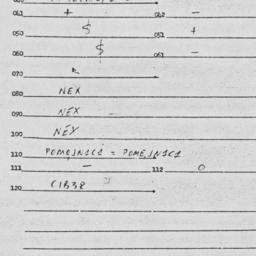 041 + 042 -
050 $ 051 +
060 $ 061 -
070
080 NEX
090 NEX -
100 NEX
110 POMEJNICI = POMEJNICI
111 - 112 0
120 CIB38